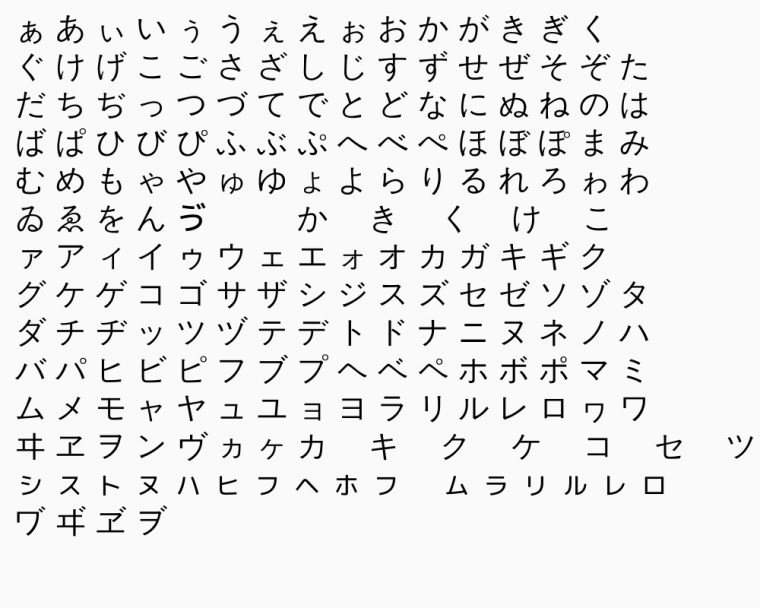 ぁ あ ぃ い ぅ う ぇ え ぉ お か が き ぎ く
ぐ け げ こ ご さ ざ し じ す ず せ ぜ そ ぞ た
だ ち ぢ っ つ づ て で と ど な に ぬ ね の は
ば ぱ ひ び ぴ ふ ぶ ぷ へ べ ぺ ほ ぼ ぽ ま み
む め も ゃ や ゅ ゆ ょ よ ら り る れ ろ ゎ わ
ゐ ゑ を ん ゔ か き く け こ
ァ ア ィ イ ゥ ウ ェ エ ォ オ カ ガ キ ギ ク
グ ケ ゲ コ ゴ サ ザ シ ジ ス ズ セ ゼ ソ ゾ タ
ダ チ ヂ ッ ツ ヅ テ デ ト ド ナ ニ ヌ ネ ノ ハ
バ パ ヒ ビ ピ フ ブ プ ヘ ベ ペ ホ ボ ポ マ ミ
ム メ モ ャ ヤ ュ ユ ョ ヨ ラ リ ル レ ロ ヮ ワ
ヰ ヱ ヲ ン ヴ ヵ ヶ カ キ ク ケ コ セ ツ
ㇱ ㇲ ㇳ ㇴ ㇵ ㇶ ㇷ ㇸ ㇹ ㇷ ㇺ ㇻ ㇼ ㇽ ㇾ ㇿ
ヷ ヸ ヹ ヺ